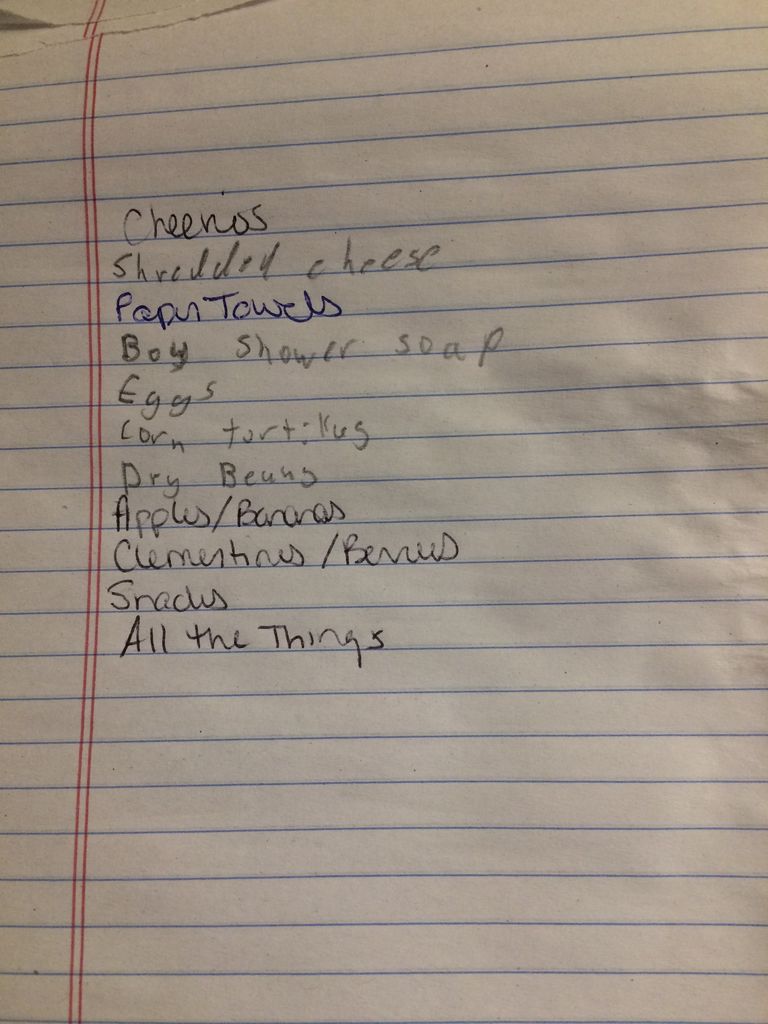 Cheerios
Shredded cheese
Paper Towels
Boy shower soap
Eggs
Corn tortillas
Dry Beans
Apples/Bananas
Clementines/Berries
Snacks
All the Things